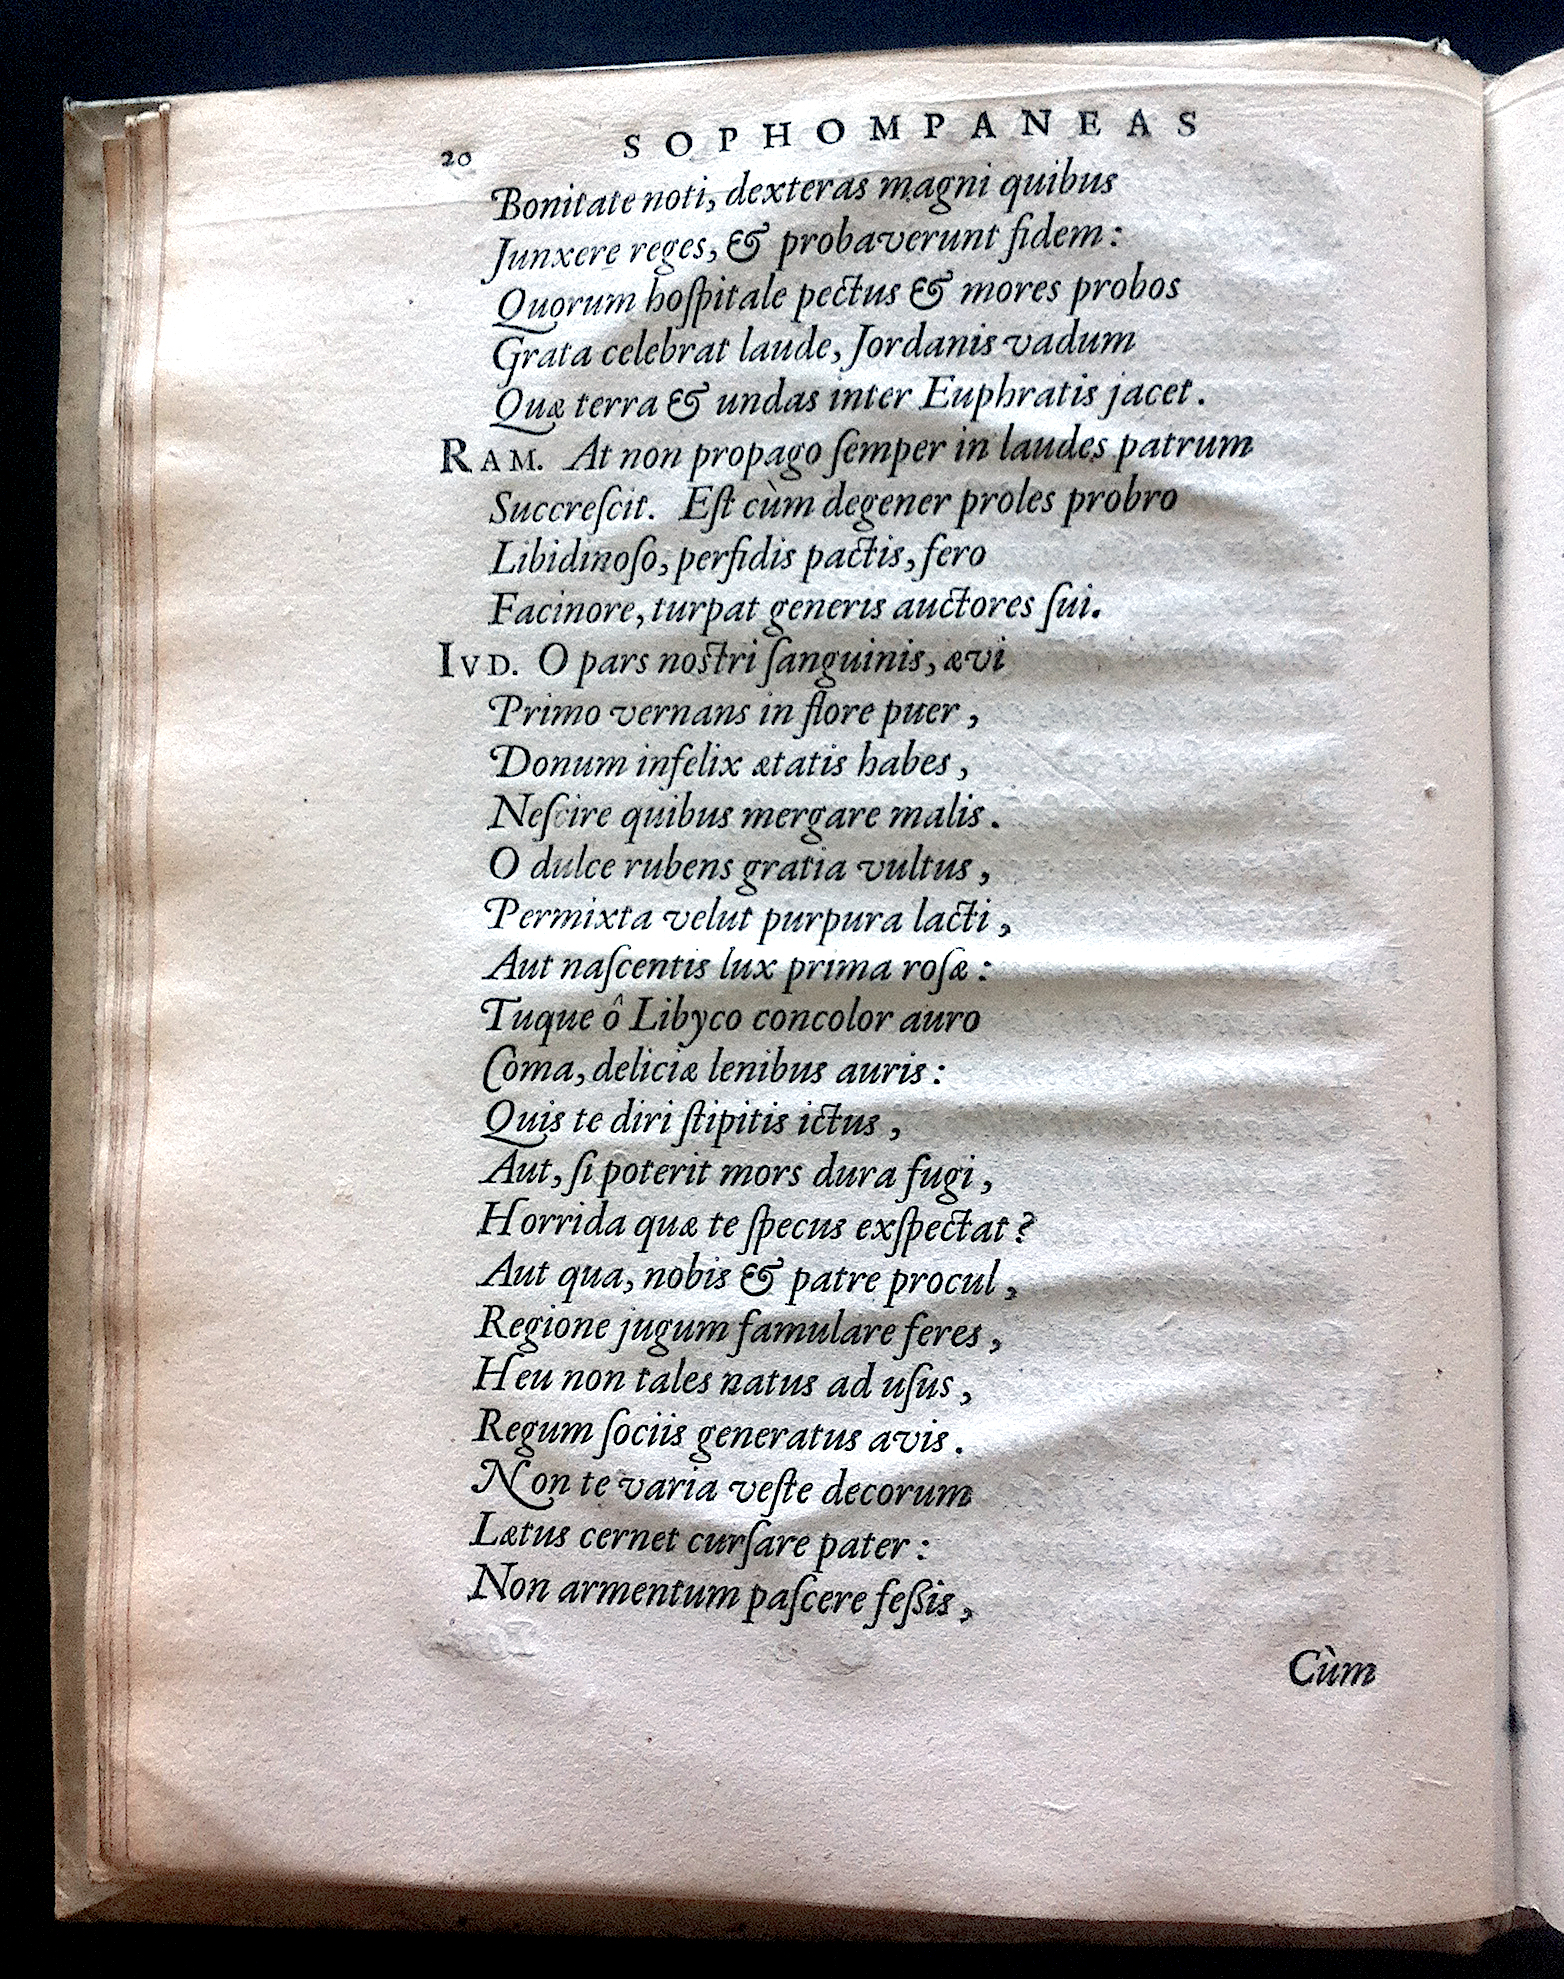 20 SOPHOMPANEAS
Bonitate noti, dexteras magni quibus
Junxere reges, & probaverunt fidem:
Quorum hoſpitale pectus & mores probos
Grata celebrat laude, Jordanis vadum
Quæ terra & undas inter Euphratis jacet.
RAM. At non propago ſemper in laudes patrum
Succreſcit. Eſt cùm degener proles probro
Libidinoſo, perfidis pactis, fero
Facinore, turpat generis auctores ſui.
IVD. O pars noſtri ſanguinis, ævi
Primo vernans in flore puer,
Donum infelix ætatis habes,
Neſcire quibus mergare malis.
O dulce rubens gratia vultus,
Permixta velut purpura lacti,
Aut naſcentis lux prima roſæ:
Tuque ô Libyco concolor auro
Coma, deliciæ lenibus auris:
Quis te diri ſtipitis ictus,
Aut, ſi poterit mors dura fugi,
Horrida quæ te ſpecus exſpectat?
Aut qua, nobis & patre procul,
Regione jugum famulare feres,
Heu non tales natus ad uſus,
Regum ſociis generatus avis.
Non te varia veſte decorum
Lætus cernet curſare pater:
Non armentum paſcere feſſis,
Cùm